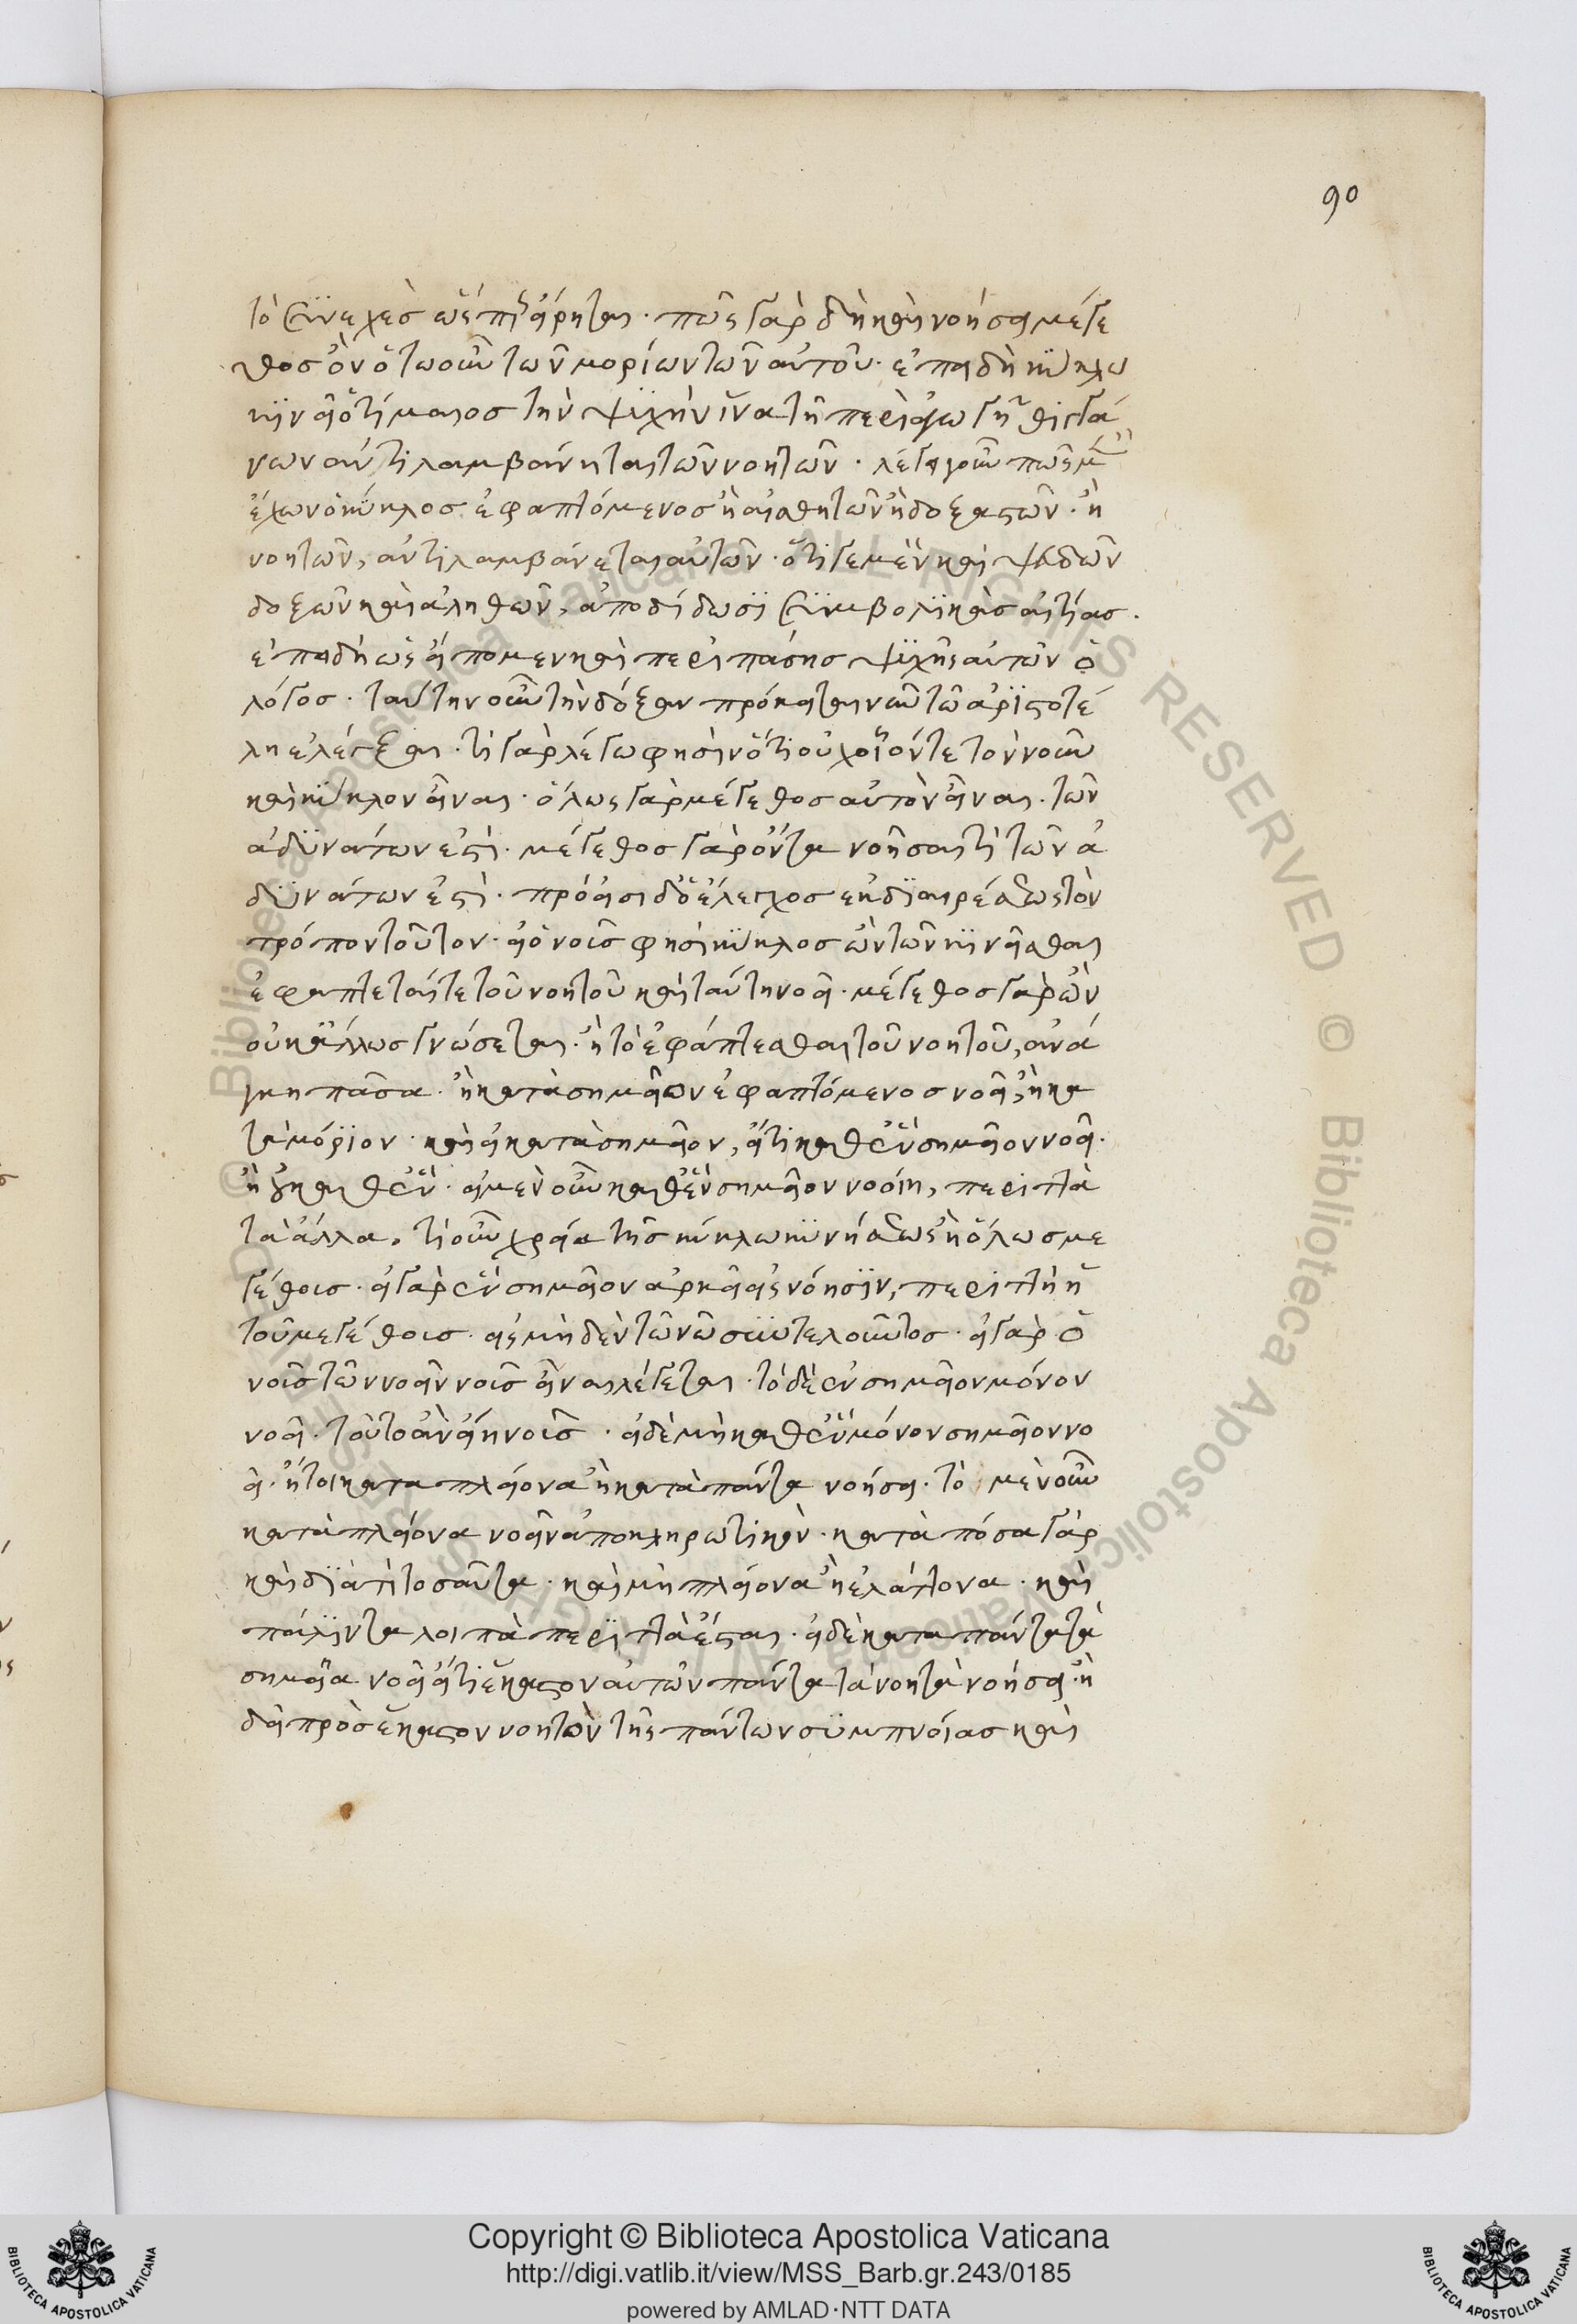 90
τὸ συνεχὲς ὡς ἐπὶ εἴρηται· πῶς γὰρ δὴ καὶ νοήσει μέγε
θος ὂν ὁτωοῦν τῶν μορίων τῶν αὐτοῦ· ἐπειδὴ κύκλω
κινεῖ ὁ τίμαιος τὴν ψυχὴν ἵνα τῆ περιαγωγῆ θιγγά
νων ἀντιλαμβάνηται τῶν νοητῶν· λέγει οὖν πῶς μὴ
ἔχων ὁ κύκλος ἐφαπτόμενος ἢ αἰσθητῶν ἢ δοξαστῶν· ἢ
νοητῶν, ἀντιλαμβάνεται αὐτῶν· ὅτι γε μὲν καὶ ψευδῶν
δοξῶν καὶ ἀληθῶν, ἀποδίδωσι συμβολικὰς αἰτίας·
ἐπειδὴ ὡς εἴπομεν καὶ περὶ πάσης ψυχῆς αὐτῶν ὁ
λόγος· ταύτην οὖν τὴν δόξαν πρόκειται νῦν τῶ ἀριστοτέ
λη ἐλέγξαι· τί γὰρ λέγω φησὶν ὅτι οὐχ οἷόν τε τὸν νοῦν
καὶ κύκλον εἶναι· ὅλως γὰρ μέγεθος αὐτὸν εἶναι· τῶν
ἀδυνάτων ἐστί· μέγεθος γὰρ ὄντα νοῆσαί τι τῶν ἀ
δυνάτων ἐστί· πρόεισι δὲ ὁ ἔλεγχος ἐκ διαιρέσεως τὸν
τρόπον τοῦτον· εἰ ὁ νοῦς φησὶ κύκλος ὢν τῶν κινεῖσθαι
ἐφάπτεταί τε τοῦ νοητοῦ καὶ ταύτη νοεῖ· μέγεθος γὰρ ὢν
οὐκ ἄλλως γνώσεται· ἢ τὸ ἐφάπτεσθαι τοῦ νοητοῦ, ἀνά
γκη πᾶσα· ἢ κατὰ σημεῖον ἐφαπτόμενος νοεῖ, ἢ κα
τὰ μόριον· καὶ εἰ κατὰ σημεῖον, εἴτι καθ ἓν σημεῖον νοεῖ·
ἢ οὐ καθ ἕν· εἰ μὲν οὖν καθ ἓν σημεῖον νοοίη, περιττὰ
τὰ ἄλλα. τί οὖν χρεία τῆς κύκλω κινήσεως ἢ ὅλως με
γέθους· εἰ γὰρ ἓν σημεῖον ἀρκεῖ εἰς νόησιν, περιττὴ ἡ
τοῦ μεγέθους· εἰς μηδὲν τῶ νῶ συντελοῦντος· εἰ γὰρ ὁ
νοῦς τῶ νοεῖν νοῦς εἶναι λέγεται· τὸ δὲ ἓν σημεῖον μόνον
νοεῖ· τοῦτο ἂν εἴη νοῦς· εἰ δὲ μὴ καθ ἓν μόνον σημεῖον νο
εῖ· ἤτοι κατὰ πλείονα ἢ κατὰ πάντα νοήσει· τὸ μὲν οὖν
κατὰ πλείονα νοεῖν ἀποκληρωτικόν· κατὰ πόσα γάρ
καὶ διατί τοσαῦτα· καὶ μὴ πλείονα ἢ ἐλάττονα· καὶ
πάλιν τὰ λοιπὰ περιττὰ ἔσται· εἰ δὲ κατὰ πάντα τὰ
σημεῖα νοεῖ εἴτι ἕκαστον αὐτῶν πάντα τὰ νοητὰ νοήσει· ἢ
δεῖ πρὸς ἕκαστον νοητὸν τῆς πάντων συμπνοίας καὶ
Copyright © Biblioteca Apostolica Vaticana
http://digi.vatlib.it/view/MSS_Barb.gr.243/0185
powered by AMLAD·NTT DATA